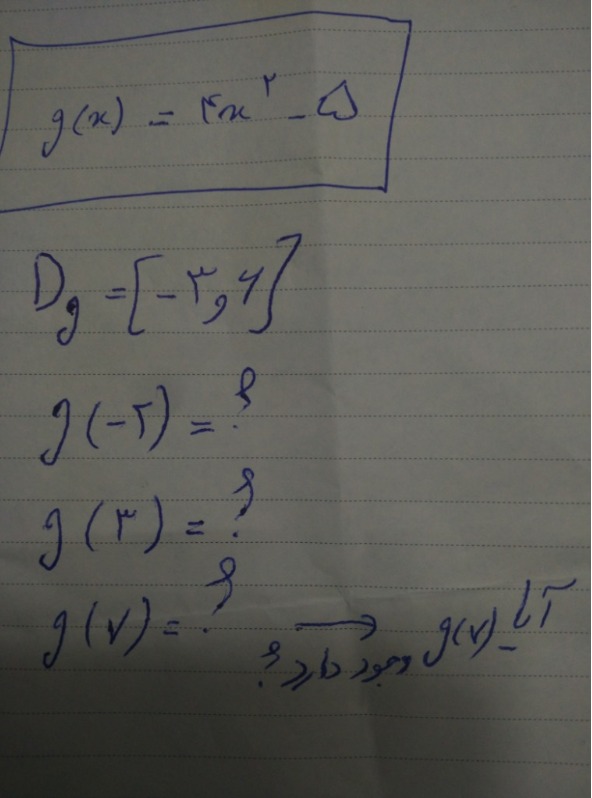 g(x) = ۳x۲ - ۵
Dg = [-۳,۶]
g(-۲) = ?
g(۳) = ?
g(۷) = ? → آیا g(۷) وجود دارد؟